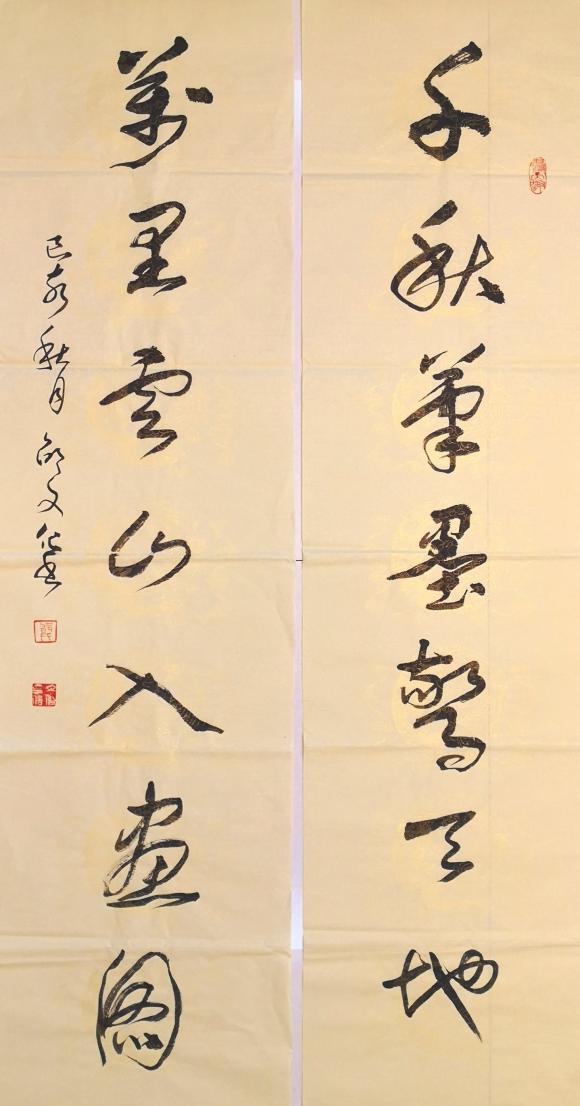 千秋筆墨驚天地
萬里雲山入畫圖
己亥秋月 文化書